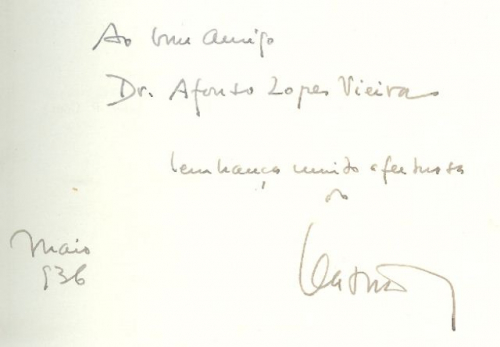 Ao bom amigo
Dr. Afonso Lopes Vieira
lembrança muito afectuosa
do
Maio
936